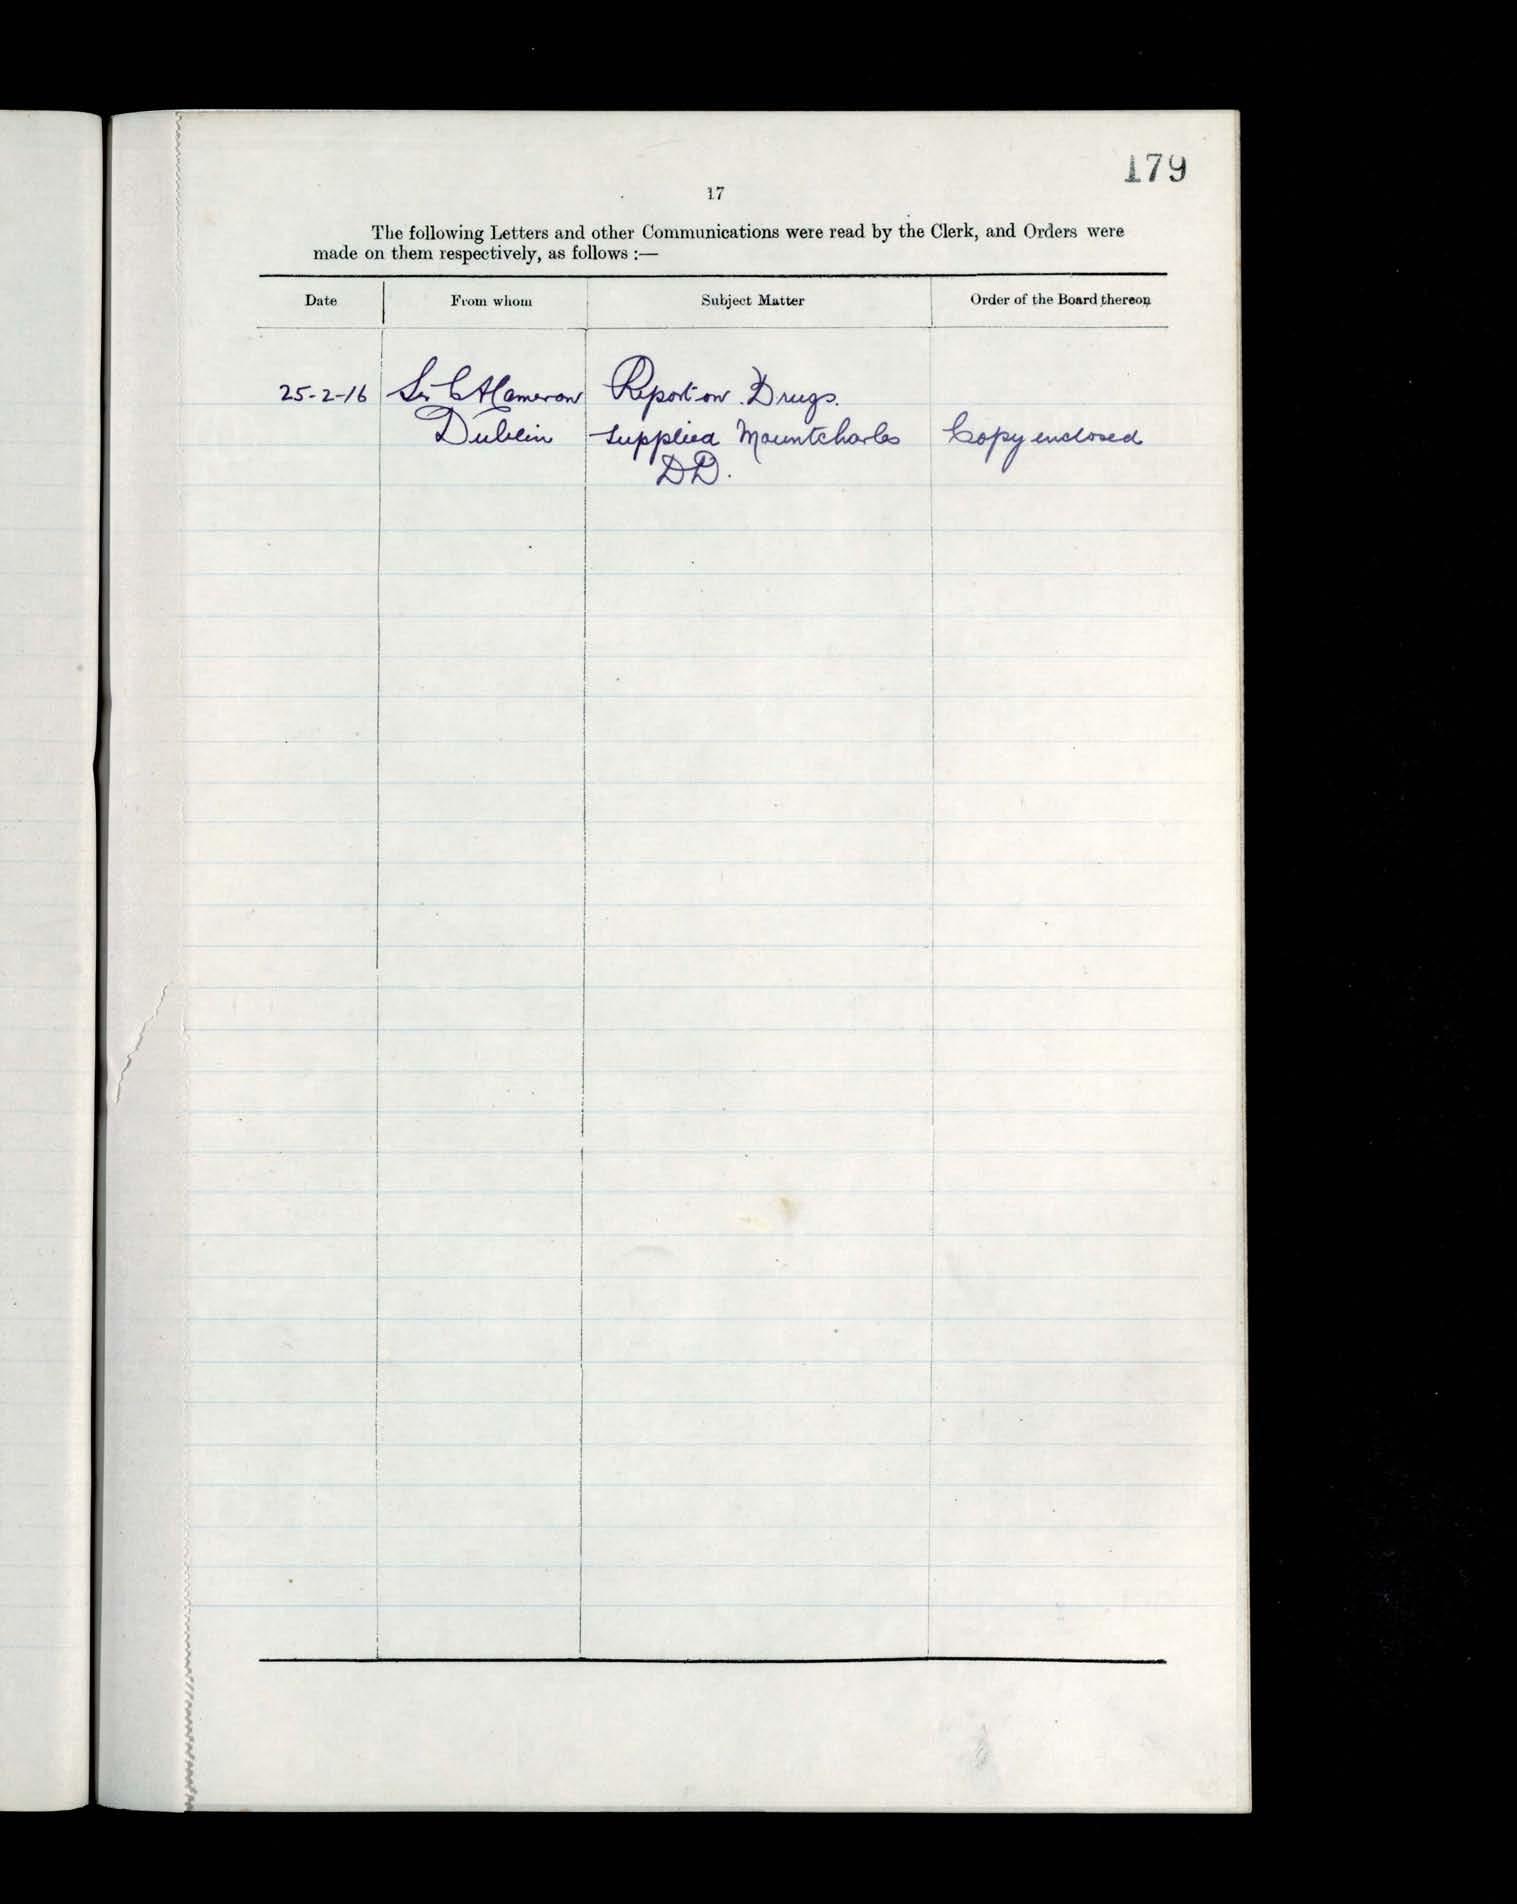 179
17
The following Letters and other Communications were read by the Clerk, and Orders were
made on them respectively, as follows :—
Date From whom Subject Matter Order of the Board thereon
25-2-16 Sir C A Cameron Report on Drugs.
Dublin supplied Mountcharles Copy enclosed
DD.